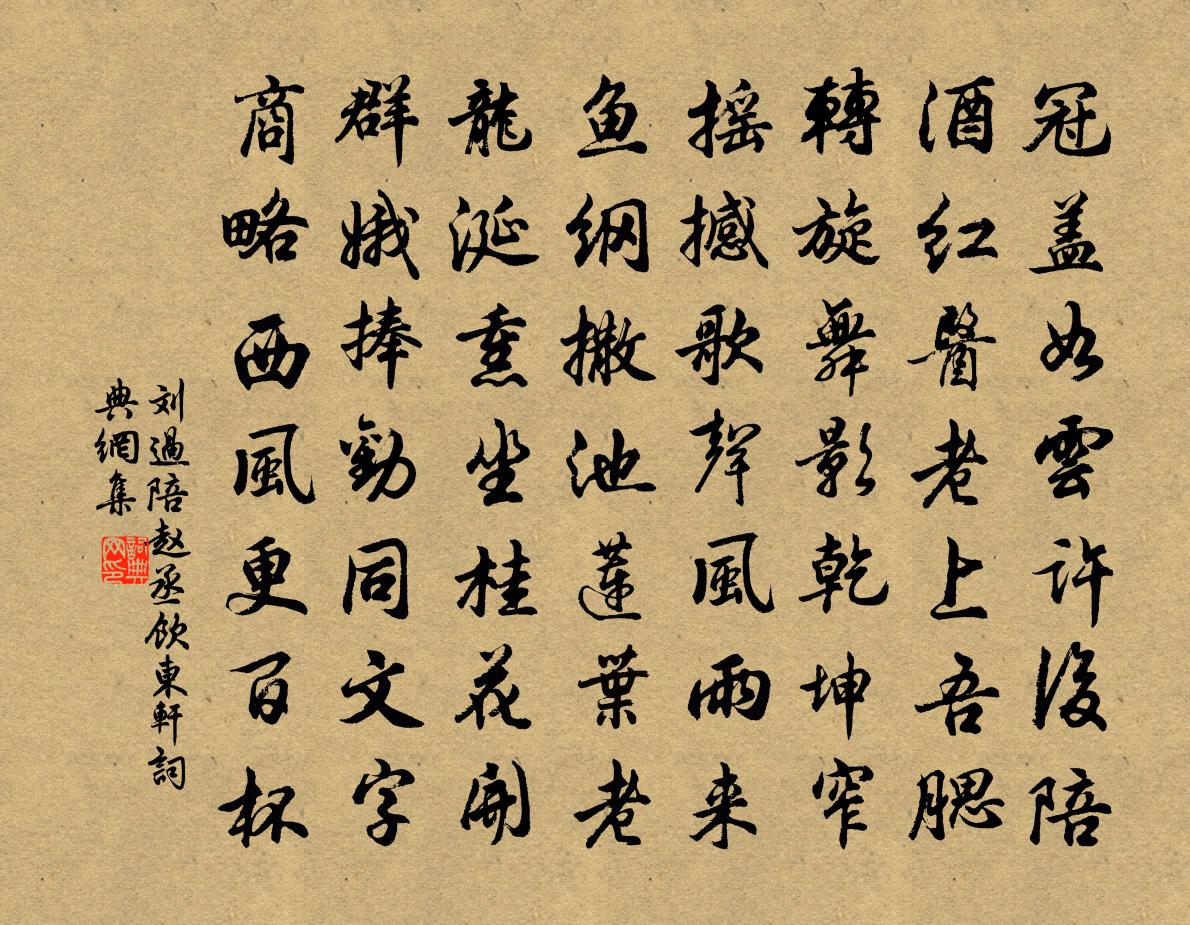 冠盖如雲許後陪
酒紅醫老上吾腮
轉旋舞影乾坤窄
摇撼歌聲風雨来
鱼網撒池蓮葉老
龍涎熏坐桂花開
群娥捧勸同文字
商略西風更百杯
刘過陪赵丞飲東軒詞
典網集
詞典网印